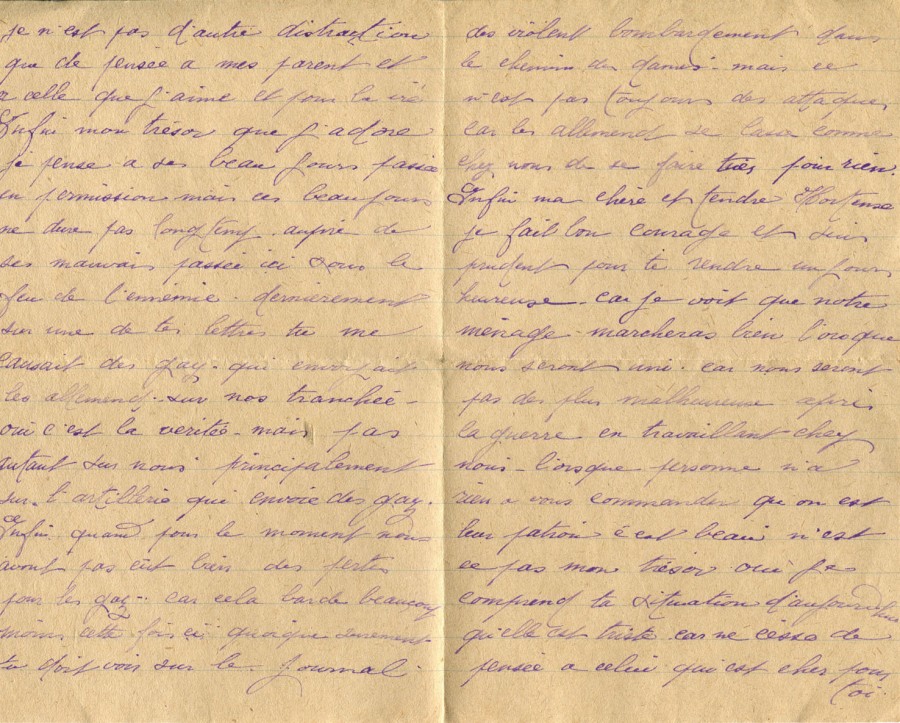 je n'est pas d'autre distraction
que de pensée a mes parent et
a celle que j'aime et pour la vie
Enfin mon trésor que j'adore
je pense a ses beau jours passée
en permission mais ces beau jours
ne dure pas longtemp. auprè de
ses mauvais passée ici sous le
feu de l'ennémie. dernierement
sur une de tes lettres tu me
causait des gaz. qui envoyait
les allemend. sur nos tranchée -
oui c'est la veritée - mais pas
autant sur nous principalement
sur l'artillerie qui envoie des gaz.
Enfin quand pour le moment nous
avont pas eut bien des pertes
pour les gaz - car cela barde beaucoup
moins cette fois ci quoique surement
tu doit voir sur le journal
des violent bombardement dans
le chemin des dames - mais ce
n'est pas toujours des attaques
car les allemend se lasse comme
chez nous de se faire tues pour rien.
Enfin ma chère et tendre Hortense
je fait bon courage et suis
prudent pour te rendre un jours
heureuse. car je voit que notre
ménage marcheras bien l'orsque
nous seront uni. car nous seront
pas des plus malheureuse après
la guerre en travaillant chez
nous - l'orsque personne n'a
rien a vous commander qu on est
leur patron c'est beau n'est
ce pas mon trésor oui je
comprend ta situation d'aujourd'hui
qu'elle est triste car ne cesse de
pensée a celui qui est cher pour
toi.